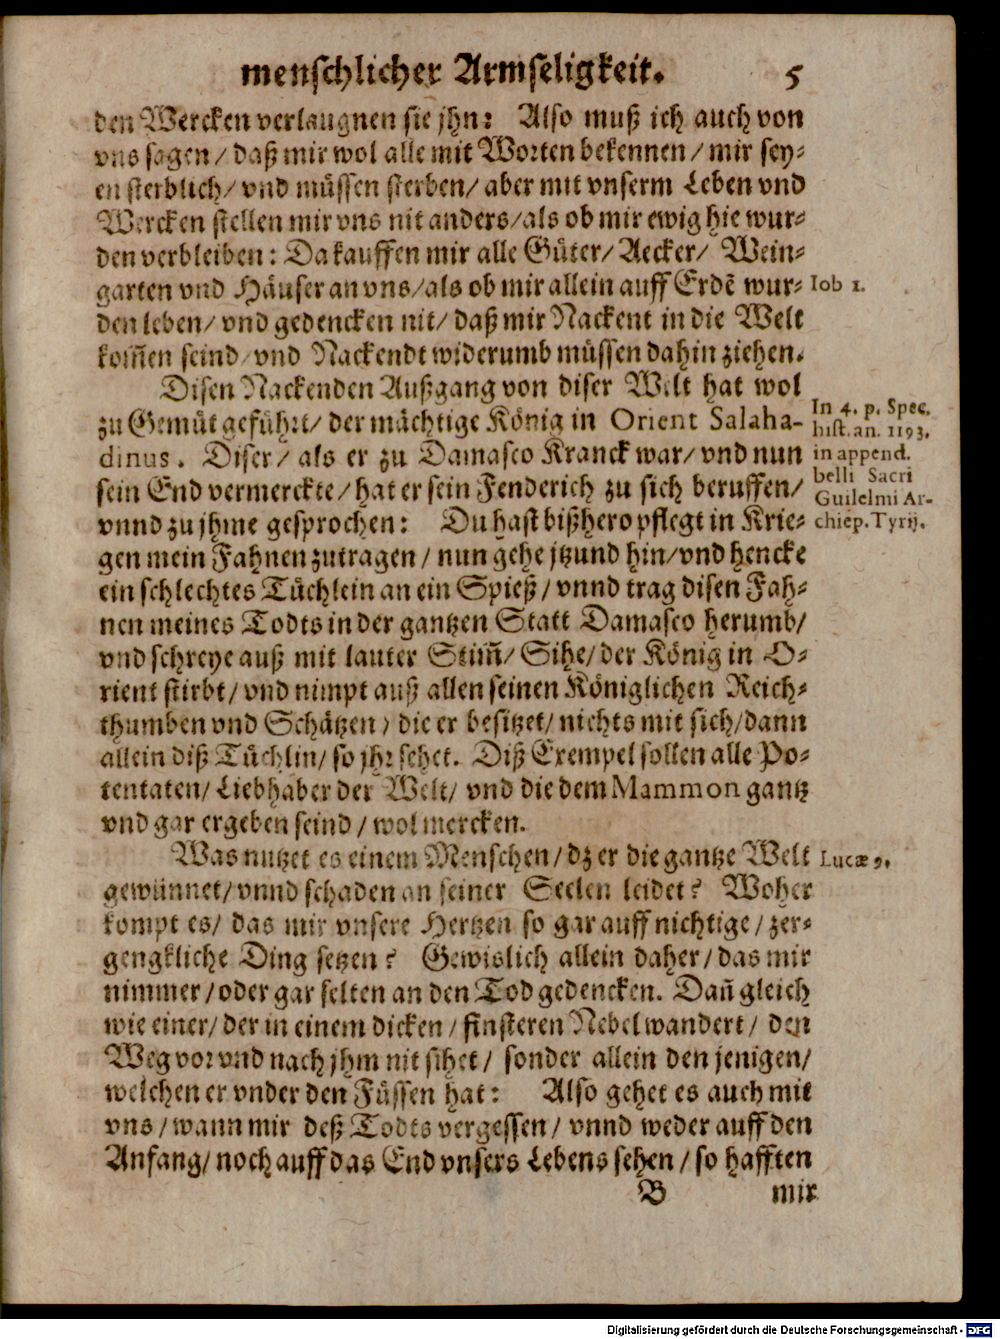 menschlicher Armseligkeit. 5
den Wercken verlaugnen sie jhn: Also muß ich auch von
vns sagen / daß mir wol alle mit Worten bekennen / mir sey-
en sterblich / vnd müssen sterben / aber mit vnserm Leben vnd
Wercken stellen mir vns nit anders / als ob mir ewig hie wur-
den verbleiben: Da kauffen mir alle Güter / Aecker / Wein-
garten vnd Häuser an vns / als ob mir allein auff Erdē wur-
Iob 1.
den leben / vnd gedencken nit / daß mir Nackent in die Welt
kom̄en seind / vnd Nackendt widerumb müssen dahin ziehen.
Disen Nackenden Außgang von diser Welt hat wol
zu Gemüt geführt / der mächtige König in Orient Salaha-
dinus. Diser / als er zu Damasco Kranck war / vnd nun
sein End vermerckte / hat er sein Fenderich zu sich beruffen /
vnnd zu jhme gesprochen: Du hast bißhero pflegt in Krie-
In 4. p. Spec.
hist. an. 1193.
in append.
belli Sacri
Guilelmi Ar-
chiep. Tyrij.
gen mein Fahnen zutragen / nun gehe jtzund hin / vnd hencke
ein schlechtes Tüchlein an ein Spieß / vnnd trag disen Fah-
nen meines Todts in der gantzen Statt Damasco herumb /
vnd schreye auß mit lauter Stim̄ / Sihe / der König in O-
rient stirbt / vnd nimpt auß allen seinen Königlichen Reich-
thumben vnd Schätzen / die er besitzet / nichts mit sich / dann
allein diß Tüchlin / so jhr sehet. Diß Exempel sollen alle Po-
tentaten / Liebhaber der Welt / vnd die dem Mammon gantz
vnd gar ergeben seind / wol mercken.
Was nutzet es einem Menschen / dz er die gantze Welt
Lucæ 9.
gewünnet / vnnd schaden an seiner Seelen leidet? Woher
kompt es / das mir vnsere Hertzen so gar auff nichtige / zer-
gengkliche Ding setzen? Gewislich allein daher / das mir
nimmer / oder gar selten an den Tod gedencken. Dan̄ gleich
wie einer / der in einem dicken / finsteren Nebel wandert / den
Weg vor vnd nach jhm nit sihet / sonder allein den jenigen /
welchen er vnder den Füssen hat: Also gehet es auch mit
vns / wann mir deß Todts vergessen / vnnd weder auff den
Anfang / noch auff das End vnsers Lebens sehen / so hafften
B mir
Digitalisierung gefördert durch die Deutsche Forschungsgemeinschaft - DFG